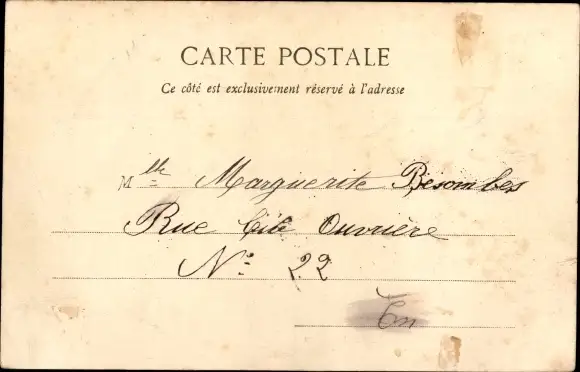 CARTE POSTALE
Ce côté est exclusivement réservé à l'adresse
Mlle Marguerite Besombes
Rue Cité Ouvrière
No 22